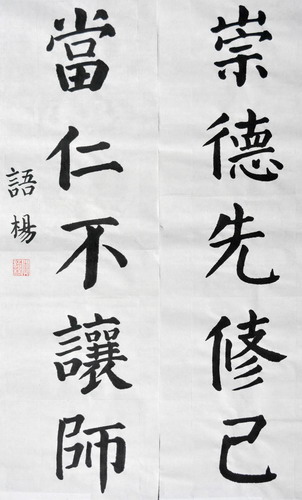 崇德先修己
當仁不讓師
語楊